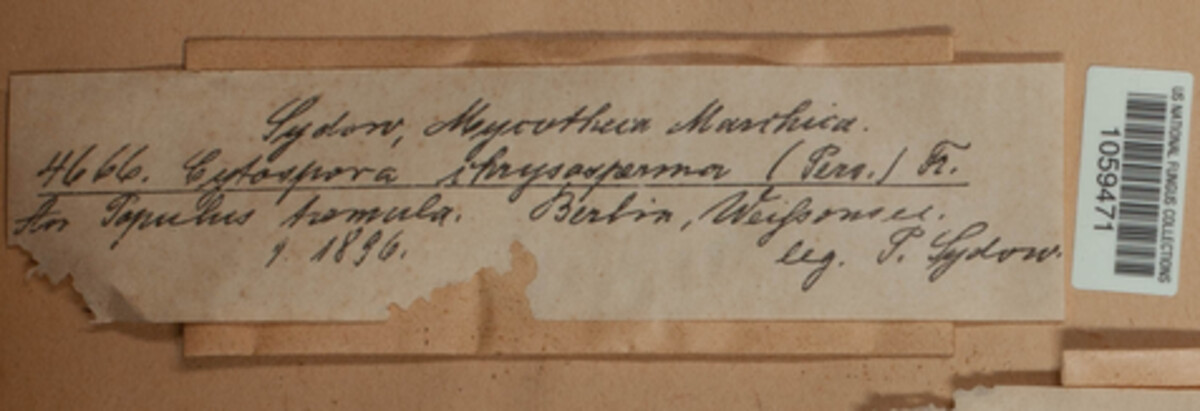 Sydow, Mycotheca Marchica.
4666. Cytospora chrysosperma (Pers.) Fr.
An Populus tremula. Berlin, Weißensee.
9. 1896. leg. P. Sydow.
US NATIONAL FUNGUS COLLECTIONS
1059471